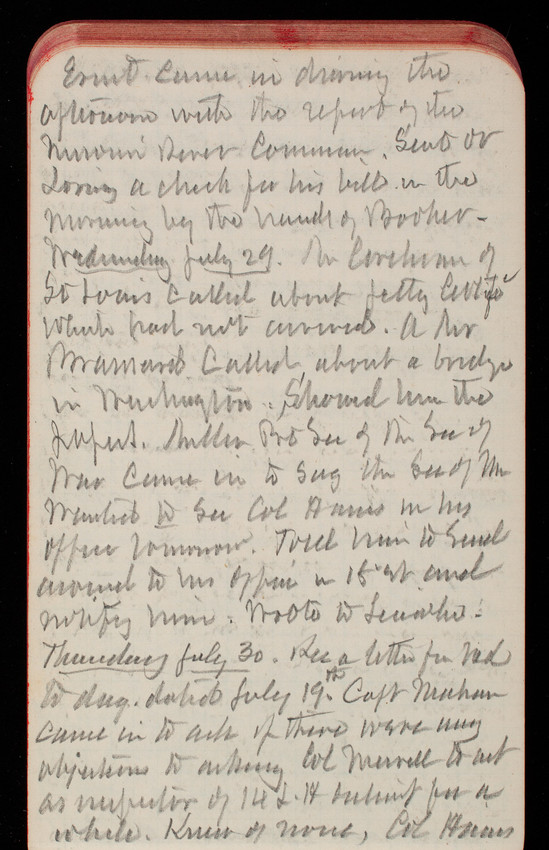 Ernst came in during the
afternoon with the report of the
Missouri River Commission. Sent Dr
Loring a check for his bill in the
morning by the hands of Booker-
Wednesday July 29. Mr Corcoran of
St Louis called about jetty
which had not arrived. A Mr
Brainard called about a bridge
in Washington. Showed him the
papers. Miller Pvt Sec of the Sec of
War came in to say the Sec of
wanted to see Col Hains in his
office tomorrow. Told him to send
around to his office in 15 st and
notify him. Wrote to
Thursday July 30. Rec a letter for
to day. dated July 19th Capt Mahan
came in to ask if there were any
objections to asking Col Merrill to act
as inspector of 14 L.H District for a
while. Knew of none, Col Hains